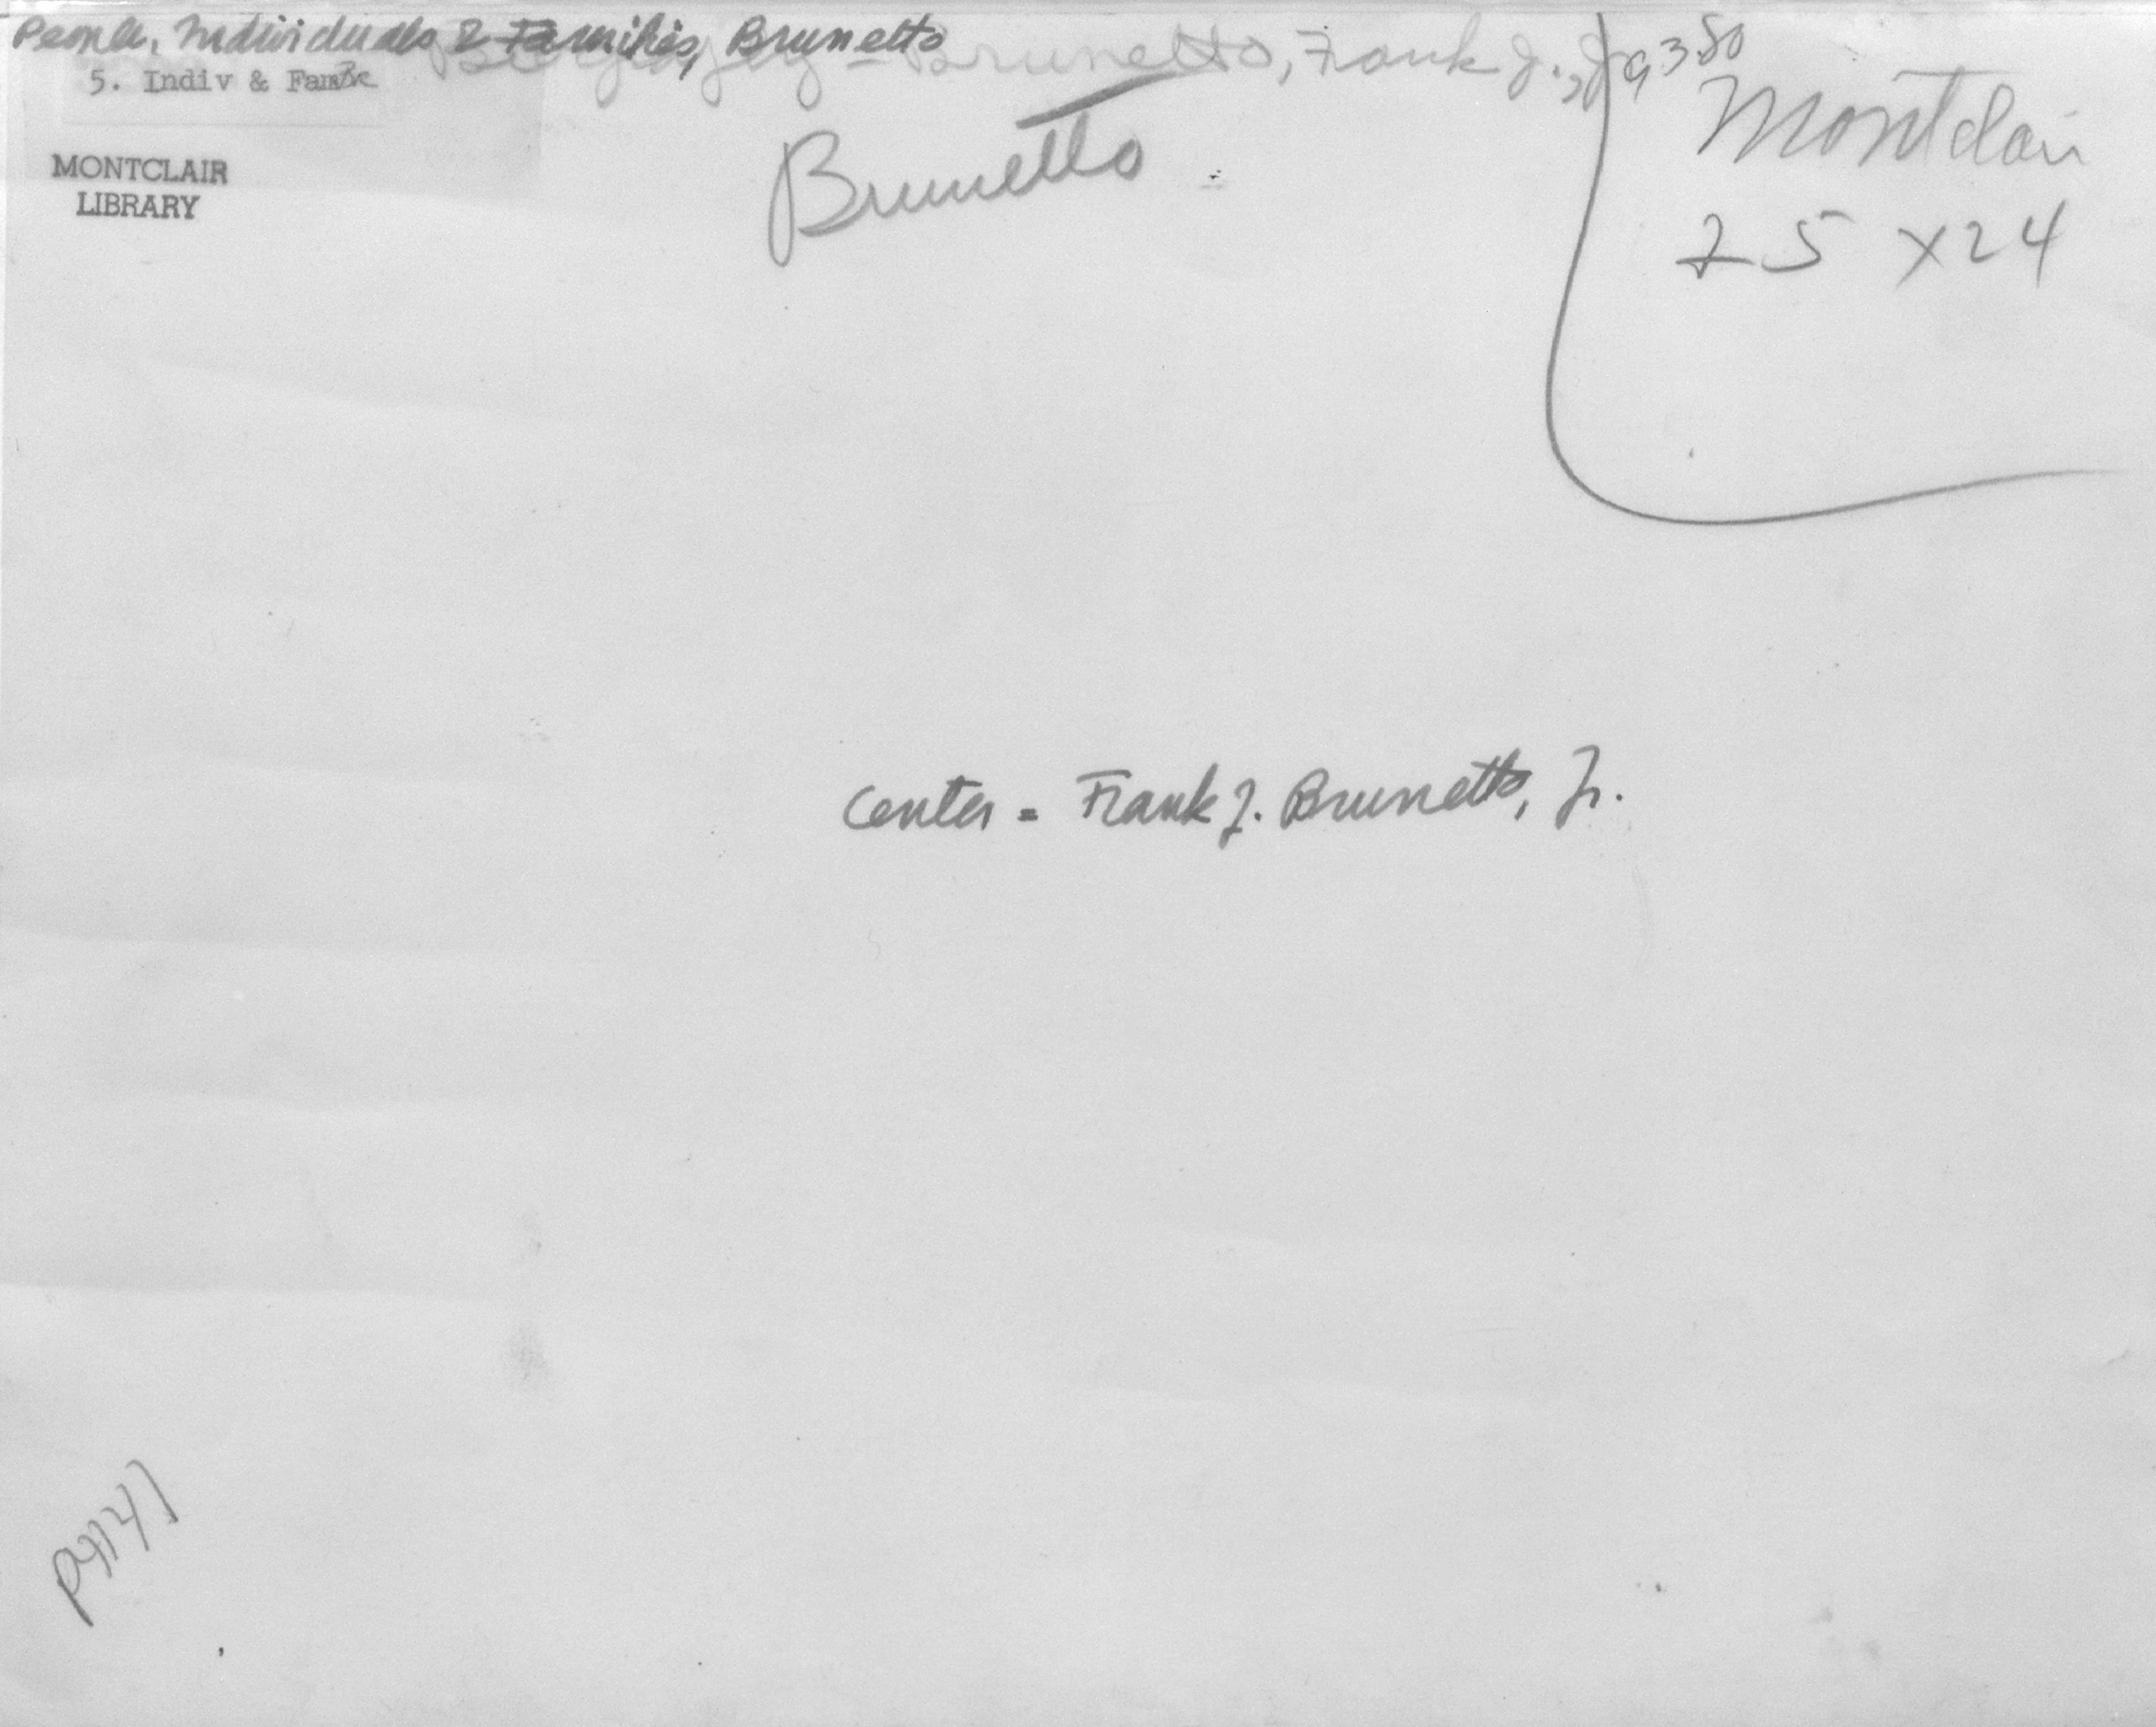 People, Individuals & Families, Brunetto
Brunetto, Frank J., J
5. Indiv & Fam
9380
MONTCLAIR
LIBRARY
Brunetto
Montclair
25 x 24
Center = Frank J. Brunetto, Jr.